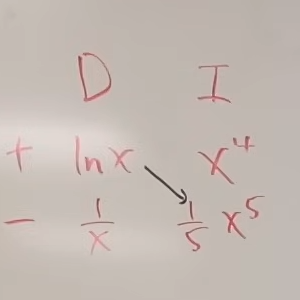 D I
+ lnx x⁴
− 1/x 1/5 x⁵